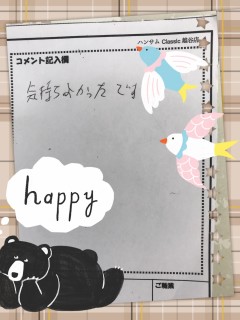 ハンサム Classic 越谷店
コメント記入欄
気持ちよかったです
happy
ご職業